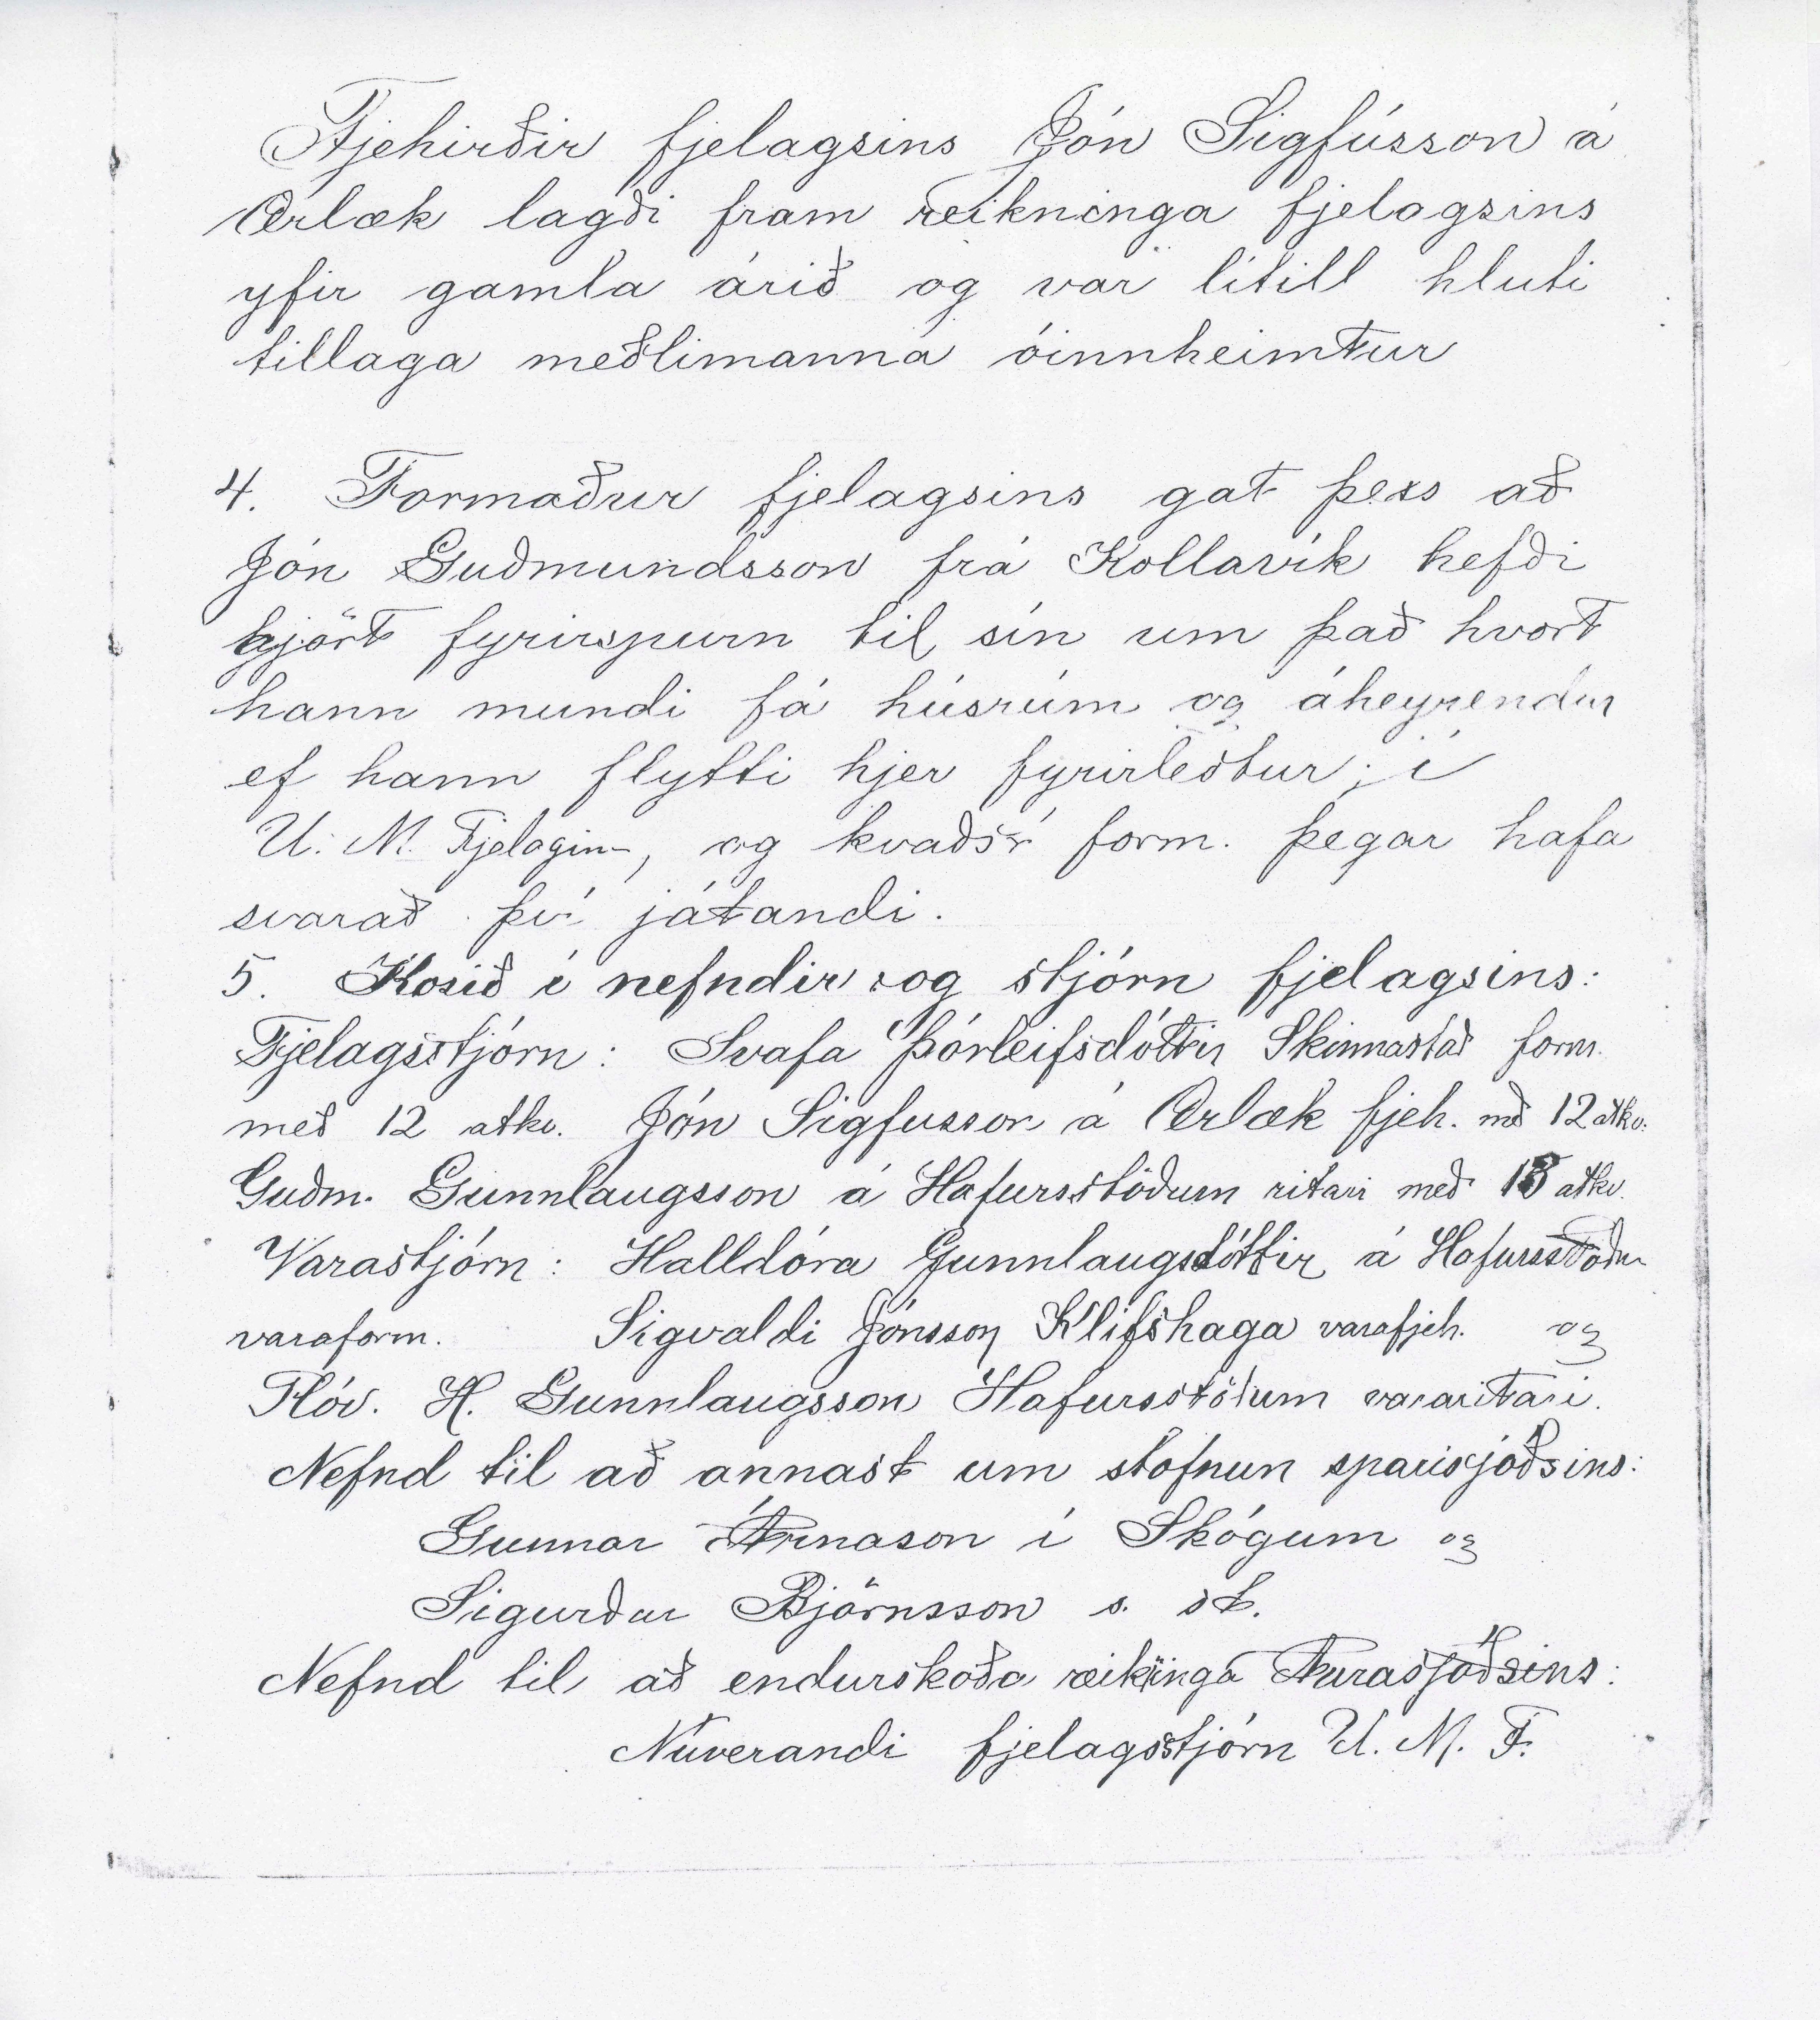 Fjehirðir fjelagsins Jón Sigfússon á
Ærlæk lagði fram reikninga fjelagsins
yfir gamla árið og var lítill hluti
tillaga meðlimanna óinnheimtur
4. Formaður fjelagsins gat þess að
Jón Guðmundsson frá Kollavík hefði
gjört fyrirspurn til sín um það hvort
hann mundi fá húsrúm og áheyrendur
ef hann flytti hjer fyrirlestur; í
U. M. Fjelagin-, og kvaðst form. þegar hafa
svarað því játandi.
5. Kosið í nefndir og stjórn fjelagsins:
Fjelagsstjórn: Svafa Þórleifsdóttir Skinnastað form.
með 12 atkv. Jón Sigfusson á Ærlæk fjeh. með 12 atkv.
Guðm. Gunnlaugsson á Hafursstöðum ritari með 13 atkv.
Varastjórn: Halldóra Gunnlaugsdóttir á Hafursstöðum
varaform. Sigvaldi Jónsson Klifshaga varafjeh. og
Flóv. H. Gunnlaugsson Hafursstöðum vararitari.
Nefnd til að annast um stofnun sparisjóðsins:
Gunnar Árnason í Skógum og
Sigurður Björnsson s. st.
Nefnd til að endurskoða reikinga Aurasjóðsins:
Núverandi fjelagsstjórn U. M. F.